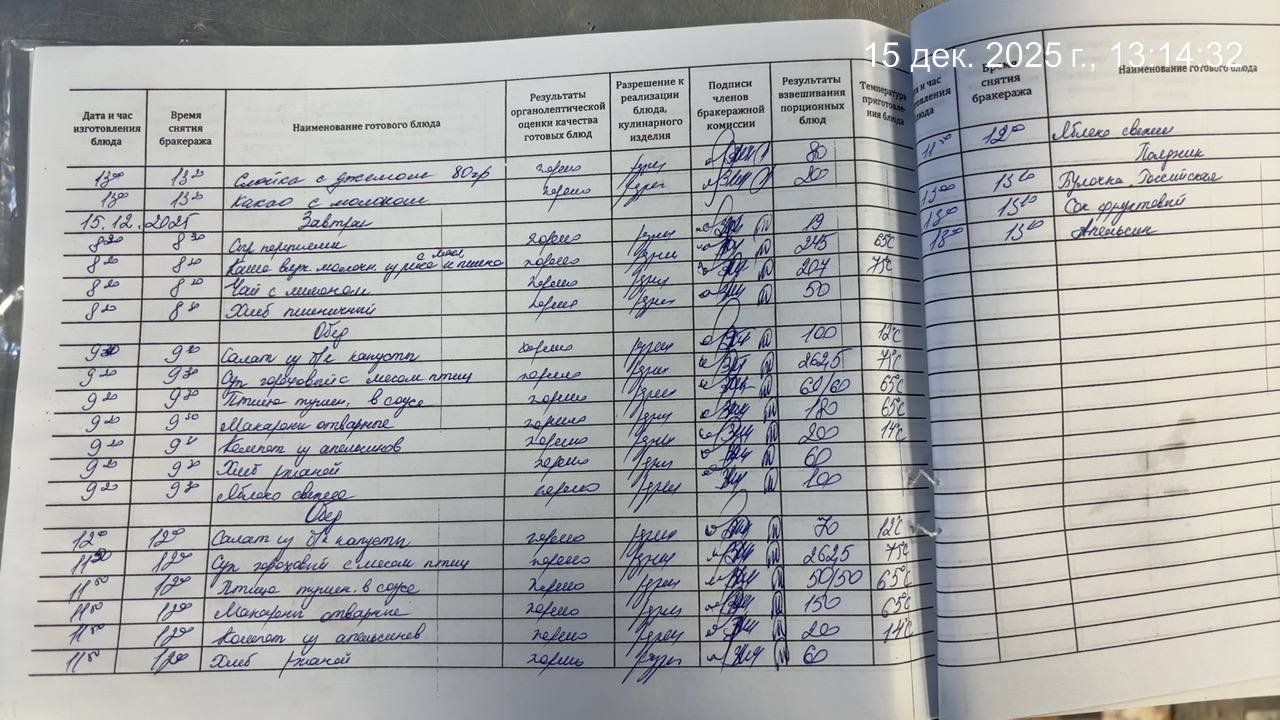 15 дек. 2025 г., 13:14:32
Дата и час изготовления блюда Время снятия бракеража Наименование готового блюда Результаты органолептической оценки качества готовых блюд Разрешение к реализации блюда, кулинарного изделия Подписи членов бракеражной комиссии Результаты взвешивания порционных блюд Температура приготовления блюда
13 00 13 20 Слойка с джемом 80 гр хорошо 80
13 00 13 20 Какао с молоком хорошо 200
15.12.2025 Завтрак
8 20 8 30 Сыр порциями хорошо 19
8 20 Каша вязк. молочн. из риса и пшена с маслом хорошо 245 65°C
8 20 Чай с лимоном хорошо 207 75°C
8 20 Хлеб пшеничный хорошо 50
Обед
9 20 9 30 Салат из б/к капусты хорошо 100 12°C
9 20 9 30 Суп гороховый с мясом птиц хорошо 262,5 75°C
9 20 9 30 Птица тушен. в соусе хорошо 60/60 65°C
9 20 9 30 Макароны отварные хорошо 180 65°C
9 20 9 30 Компот из апельсинов хорошо 200 14°C
9 20 9 30 Хлеб ржаной хорошо 60
9 20 9 30 Яблоко свежее хорошо 100
Обед
12 00 Салат из б/к капусты хорошо 70 12°C
11 50 12 00 Суп гороховый с мясом птиц хорошо 262,5 75°C
11 50 12 00 Птица тушен. в соусе хорошо 50/50 65°C
11 50 12 00 Макароны отварные хорошо 150 65°C
11 50 12 00 Компот из апельсинов хорошо 200 14°C
11 50 12 00 Хлеб ржаной хорошо 60
Время снятия бракеража Наименование готового блюда
12 00 Яблоко свежее
Полдник
13 00 13 20 Булочка Российская
13 00 13 20 Сок фруктовый
13 00 13 20 Апельсин